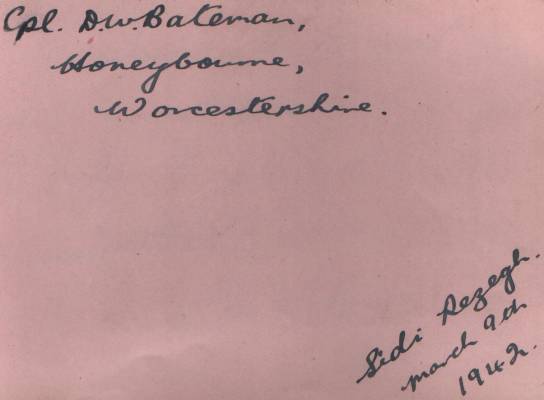 Cpl. D.W. Bateman,
Honeybourne,
Worcestershire.
Sidi Rezegh.
March 9th
1942.